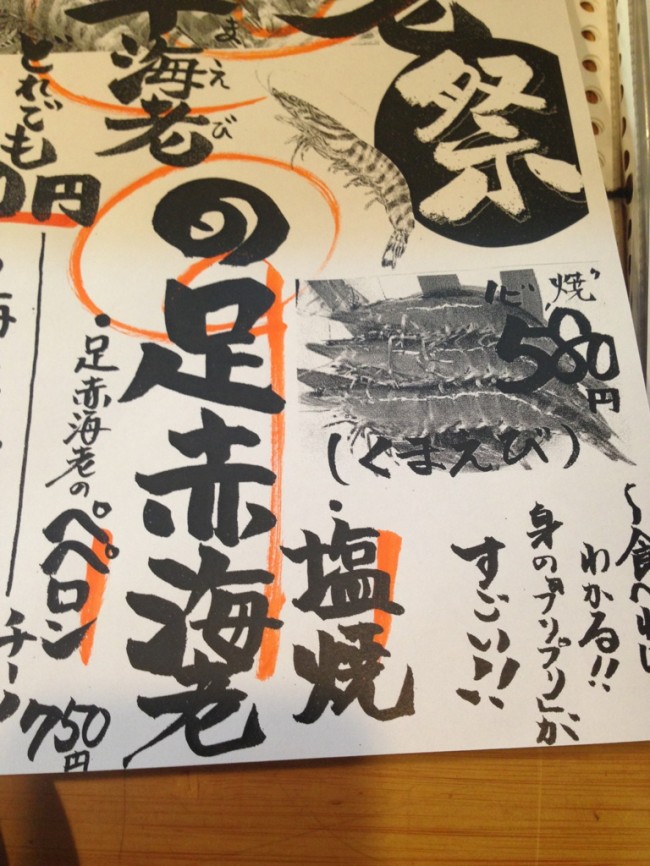 祭
海老
まえび
どれでも
0円
の足赤海老
焼
580円
(くまえび)
・塩焼
〜食べれば
わかる!!
身の「プリプリ」が
すごい!!
・足赤海老の
ペペロン
チー
750円